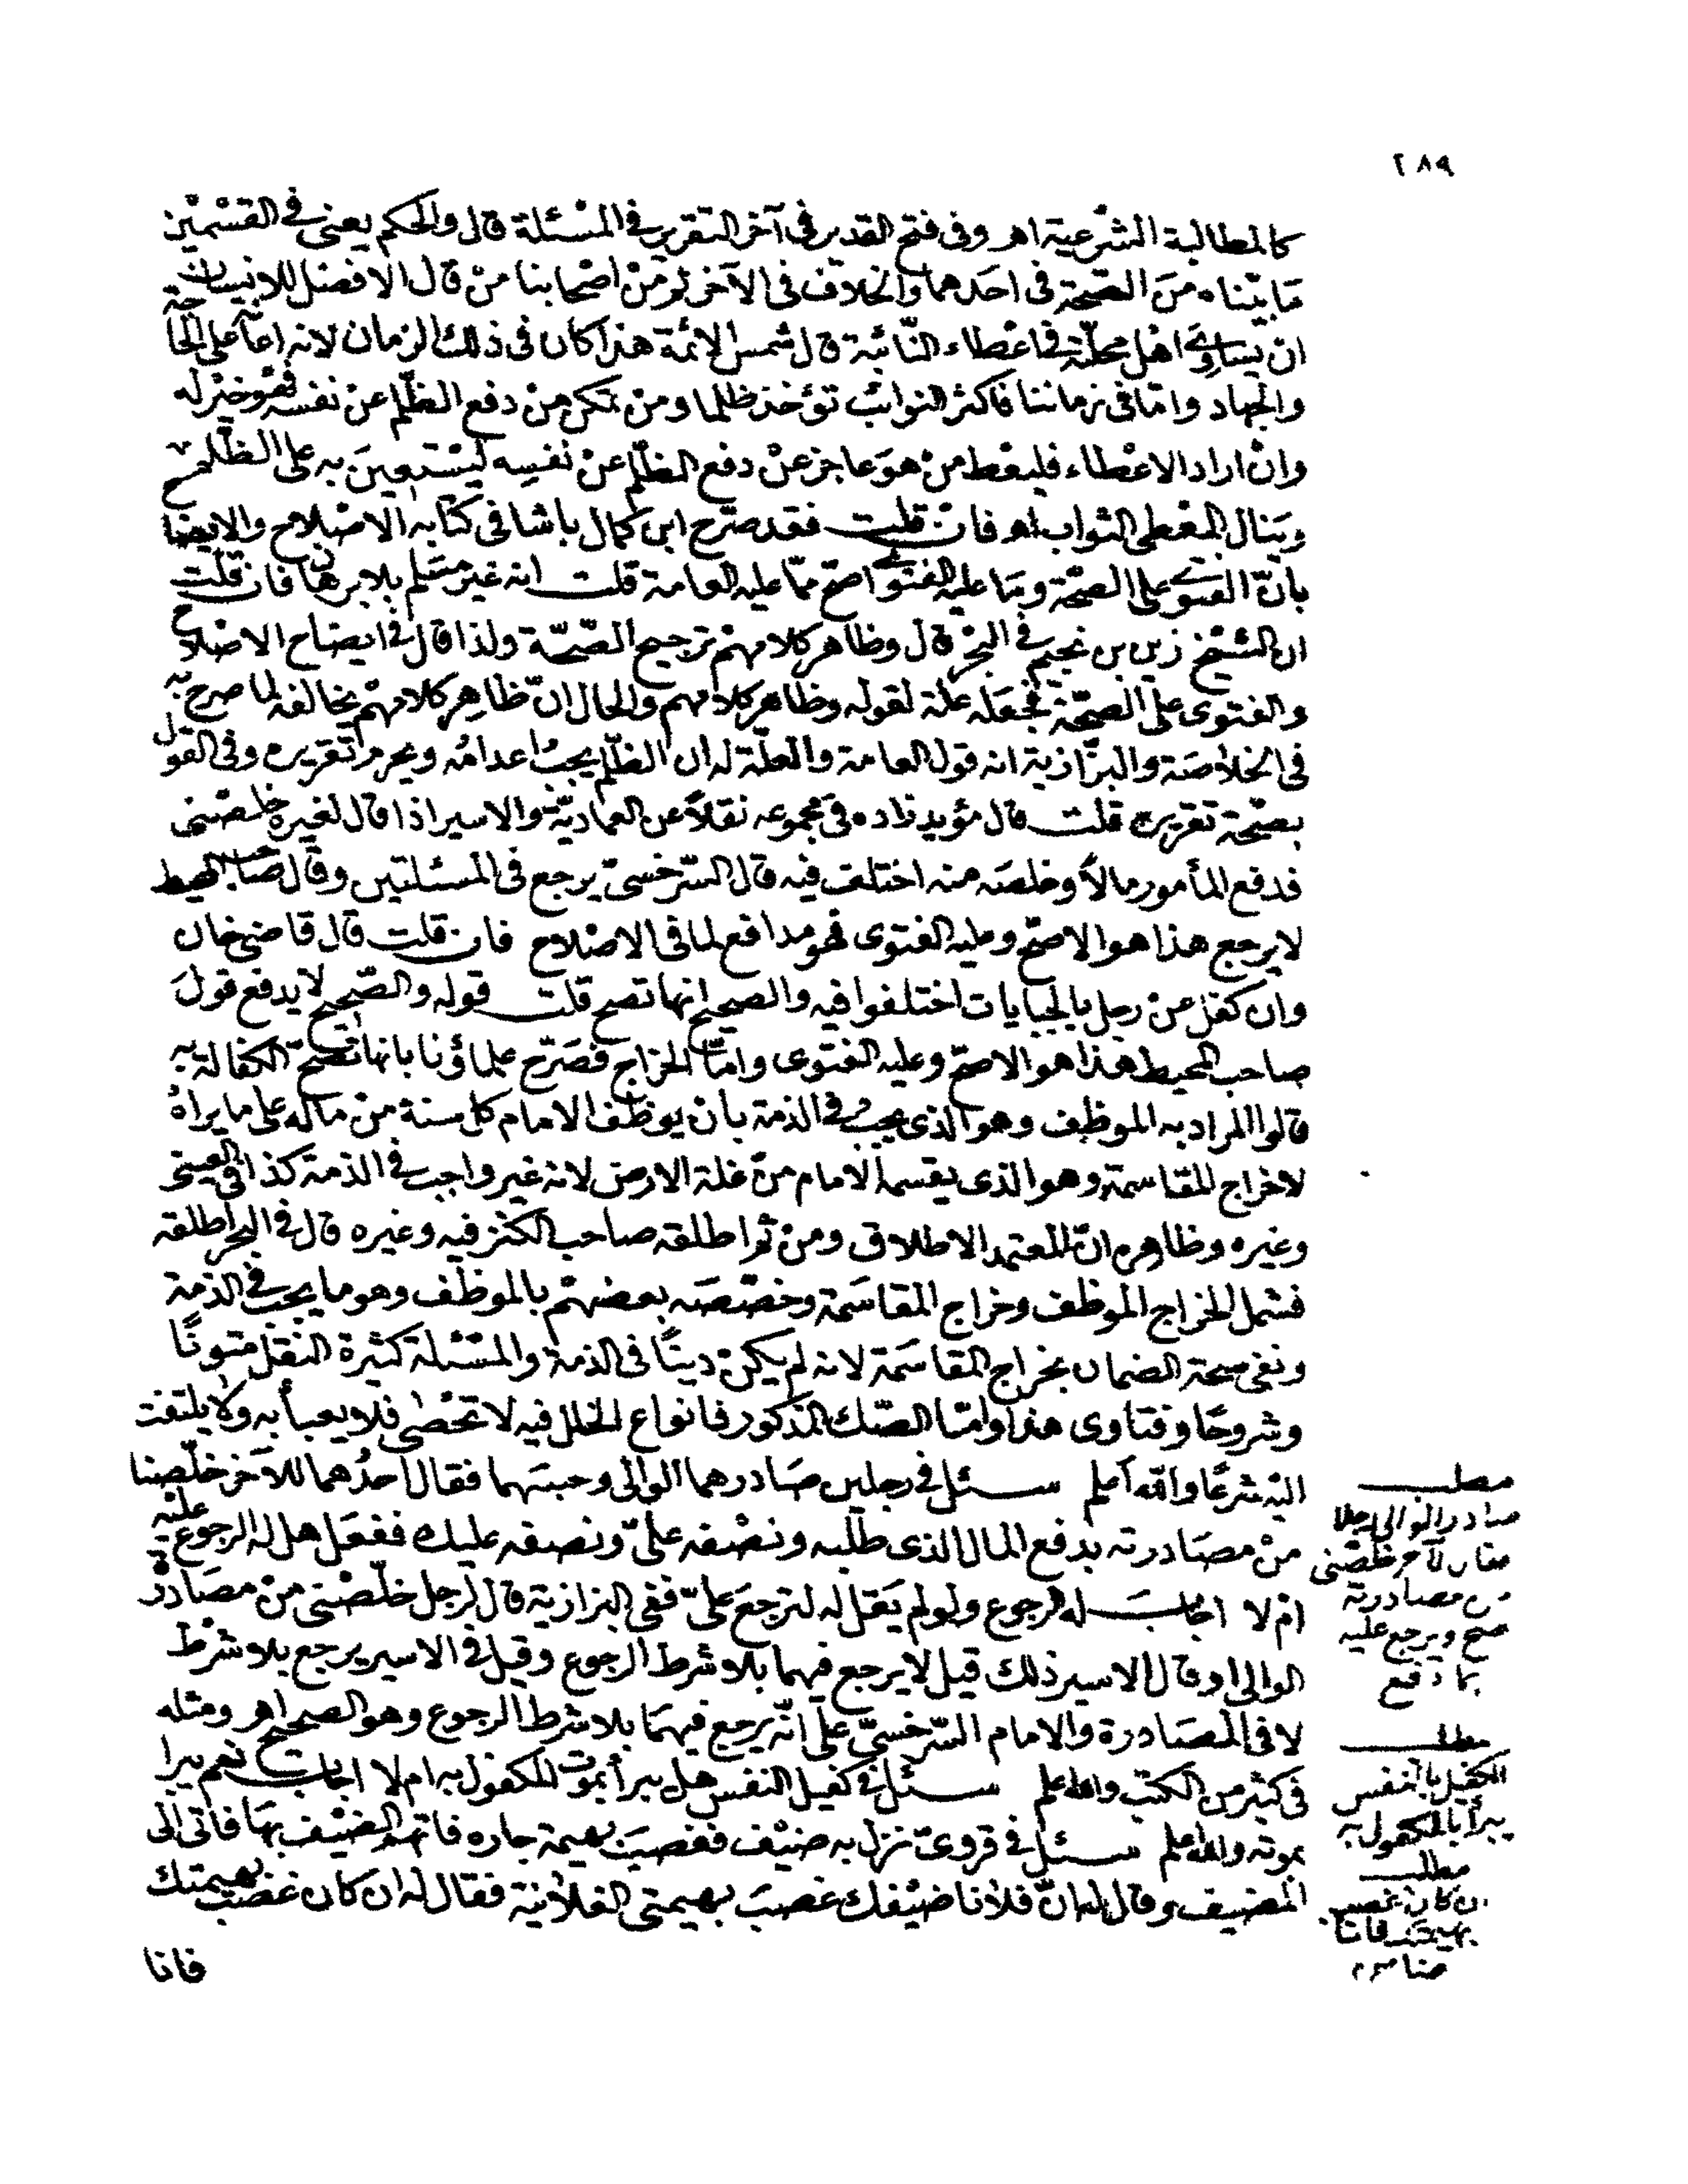 ٢٨٩
كالمطالبة الشرعية اهر وفى فتح القدير فى آخر التقرير فى المسئلة قال والحكم يعنى فى القسمين
مَا بيّناه منَ الصّحة فى احَدهما والخلاف فى الآخر ثم منْ اصْحابنا منْ قال الافضل للانسان
ان يسَاوِىَ اهْل محلّته فى اعْطاء النّائبة قال شمس الائمة هذا كان فى ذلك الزمان لانه اعانة على الحاجة
والجهاد وامّا فى زماننا فاكثر النوائب تؤخذ ظلما ومن تمكن منْ دفع الظّلم عنْ نفسه فهوَ خيْر له
وانْ اراد الاعْطاء فليعْط منْ هوَ عاجز عنْ دفع الظّلم عنْ نفسِه ليسْتعِينَ به على الظّلم
وينال المعْطى الثواب اهر فانْ قلت فقد صرّح ابن كمال باشا فى كتابه الاصْلاح والايضاح
بانّ الفتوى على الصّحّة ومَا عليه الفتوى اصحّ ممّا عليه العامة قلت انه غير مسَلم بلا برهان فان قلت
ان الشّيْخ زين بن نجيم فى البحْر قال وظاهر كلامهمْ ترجيح الصّحّة ولذا قال فى ايضاح الاصْلاح
والفتوى على الصّحّة فجعَله علة لقوله وظاهر كلامهم والحال انّ ظاهِر كلامهمْ يخالفه لما صرح به
فى الخلاصَة والبزّازية انه قول العامة والعلّة له ان الظّلم يجبُ اعدامُه ويحرم تقريره وفى القول
بصّحة تقريره قلت قال مؤيد زاده فى مجموعه نقلاً عن العماديّة والاسير اذا قال لغيره خلصْنى
فدفع المأمور مالاً وخلصَه منه اختلف فيه قال السّرخسىّ يرجع فى المسئلتين وقال صَاحب المحيط
لا يرجع هذا هو الاصحّ وعليه الفتوى فهو مدافع لما فى الاصْلاح فان قلت قال قاضى خان
وان كفل عنْ رجل بالجبايات اختلفوا فيه والصحيح انها تصح قلت قوله والصّحيح لا يدفع قولَ
صاحب المحيط هذا هو الاصحّ وعليه الفتوى وامّا الخراج فصَرّح علماؤنا بانها تصحّ الكفالة به
قالوا المراد به الموظف وهو الذى يجبُ فى الذمة بانْ يوظف الامام كل سنة منْ ماله على ما يراهُ
لا خراج المقاسمة وهو الذى يقسمه الامام منْ غلة الارض لانه غير واجب فى الذمة كذا فى العينى
وغيره وظاهره انّ المعتمد الاطلاق ومنْ ثم اطلقه صاحب الكنْز فيه وغيره قال فى البحر اطلقه
فشمل الخراج الموظف وخراج المقاسَمة وخصّصَه بعضهمْ بالموظّف وهو ما يجب فى الذمة
ونفى صحة الضمان بخراج المقاسَمة لانه لم يكنْ ديناً فى الذمة والمسْئلة كثيرة النقل متوناً
وشروحًا وفتاوى هذا وامّا الصّك المذكور فانواع الخلل فيه لا تحْصى فلا يعبأ به ولا يلتفت
اليْه شرعًا والله اعلم سئل فى رجلين صَادرهما الوالى وحبسَهما فقال احدُهما للآخر خلّصنا
منْ مصَادرته بدفع المال الذى طلبه ونصْفه علىّ ونصفه عليك ففعَل هل له الرجوع عليْه
امْ لا اجابَ له الرجوع ولو لم يَقل له لترجعَ علىّ ففى البزازية قال لرجل خلّصْنى منْ مصَادرة
الوالى او قال الاسير ذلك قيل لا يرجع فيهما بلا شرط الرجوع وقيل فى الاسير يرجع بلا شرْط
لا فى المصَادرة والامام السّرخسىّ على انّه يرجع فيهمَا بلا شرط الرجوع وهو الصحيح اهر ومثله
فى كثير من الكتب والله اعلم سئل فى كفيل النفس هل يبرأ بموت المكفول به ام لا اجاب نعم يبرا
بموته والله اعلم سئل فى قروىّ نزل به ضيْف فغصبَ بهيمة جاره فاتهم الضيْف بهَا فاتى الى
المضيف وقال له انّ فلانا ضيْفك غصبَ بهيمتى الفلانية فقال له ان كان غصَب بهيمتك
فانا
مطلب
صادر الوالى رجلا
فقال لآخر خلصْنى
من مصادرته
صح ويرجع عليه
بما دفع
مطلب
الكفيل بالنفس
يبرأ بالمكفول به
مطلب
ان كان غصب
بهيمتك فانا
ضامن